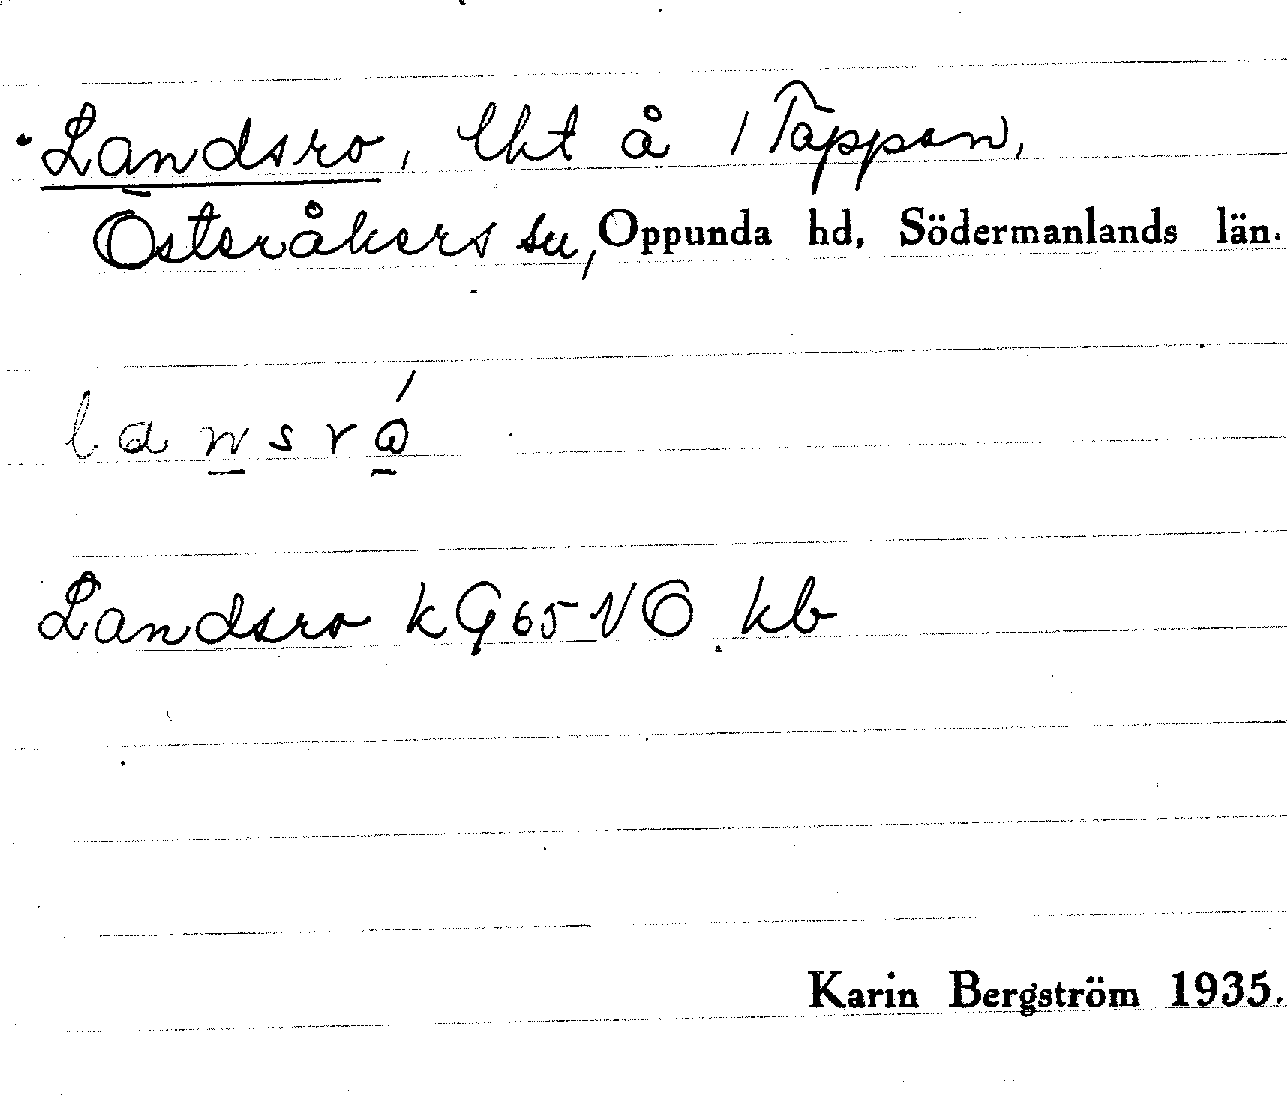 Landsro, lht å 1 Täppan,
Österåkers sn, Oppunda hd, Södermanlands län.
lansró
Landsro kG65 NO kb
Karin Bergström 1935.